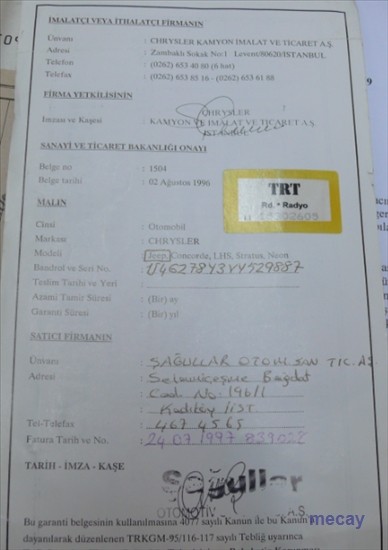 İMALATÇI VEYA İTHALATÇI FİRMANIN
Ünvanı : CHRYSLER KAMYON İMALAT VE TİCARET A.Ş.
Adresi : Zambaklı Sokak No:1 Levent/80620/İSTANBUL
Telefon : (0262) 653 40 80 (6 hat)
Telefax : (0262) 653 85 16 - (0262) 653 61 88
FİRMA YETKİLİSİNİN
CHRYSLER
İmzası ve Kaşesi : KAMYON VE İMALAT VE TİCARET A.Ş.
İSTANBUL
SANAYİ VE TİCARET BAKANLIĞI ONAYI
Belge no : 1504
Belge tarihi : 02 Ağustos 1996
TRT
Rd. * Radyo
MALIN
Cinsi : Otomobil
Markası : CHRYSLER
Modeli : Jeep, Concorde, LHS, Stratus, Neon
Bandrol ve Seri No.
Teslim Tarihi ve Yeri :
Azami Tamir Süresi : (Bir) ay
Garanti Süresi : (Bir) yıl
SATICI FİRMANIN
Ünvanı : SAĞULLAR OTOM. SAN TİC. AŞ
Adresi : Selamiçeşme Bağdat
Cad No: 196/1
Kadıköy / İST
Tel-Telefax : 467 45 65
Fatura Tarih ve No. : 24.07.1997
TARİH - İMZA - KAŞE
Sağullar
OTOMOTİV A.Ş.
Bu garanti belgesinin kullanılmasına 4077 sayılı Kanun ile bu Kanun'a
dayanılarak düzenlenen TRKGM-95/116-117 sayılı Tebliğ uyarınca
mecay